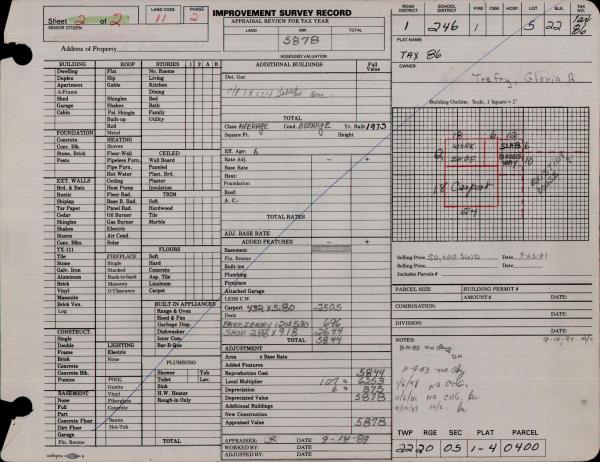 IMPROVEMENT SURVEY RECORD
Sheet 2 of 2
SENIOR CITIZEN
LAND CODE
11
PHASE
2
APPRAISAL REVIEW FOR TAX YEAR
LAND
IMP.
TOTAL
5878
Address of Property
ASSESSED VALUATION
ROAD DISTRICT
SCHOOL DISTRICT
FIRE
CEM.
HOSP.
LOT
TAX NO.
1 246 1 5 22 86
PLAT NAME
TAX 86
OWNER
Trefry, Gloria A
BUILDING
ROOF
STORIES
1 2 A B
Dwelling Flat No. Rooms
Duplex Hip Living
Apartment Gable Kitchen
A-Frame Dining
Shed Shingles Bed
Garage Shakes Bath
Cabin Pat Shingle Family
Built-up Utility
Roll
FOUNDATION Metal
Concrete HEATING
Conc. Blk. Stoves CEILED
Stone, Brick Floor-Wall
Posts Pipeless Furn. Wall Board
Pipe Furn. Paneled
Hot Water Plast. Brd.
EXT. WALLS Ceiling Plaster
Brd. & Bats Heat Pump Insulation
Rustic Floor Rad. TRIM
Shiplap Base B. Rad. Soft
Tar Paper Panel Rad. Hardwood
Cedar Oil Burner Tile
Shingles Gas Burner Marble
Shakes Electric
Stucco Air Cond.
Conc. Blks. Solar
TX-111 FLOORS
Tile FIREPLACE Soft
Stone Single Hard
Galv. Iron Stacked Concrete
Aluminum Back-to-back Asp. Tile
Brick Masonry Linoleum
Vinyl O'Clearance Carpet
Masonite
Brick Ven. BUILT-IN APPLIANCES
Log Range & Oven
Hood & Fan
Garbage Disp.
CONSTRUCT. Dishwasher
Single Inter Com.
Double LIGHTING Bar-B-Que
Frame Electric
Brick None PLUMBING
Concrete
Concrete Blk. Shower Tub
Pumice POOL Toilet Lav.
Gunite Sink
BASEMENT Vinyl H.W. Heater
None Fiberglass Rough-in Only
Full Concrete
Part
Concrete Floor Sauna
Dirt Floor Hot-Tub
Garage
Fin. Rooms TOTAL
ADDITIONAL BUILDINGS
Full Value
Det. Gar.
TOTAL
Class AVERAGE Cond. AVERAGE Yr. Built 1973
Square Ft. Height
Eff. Age: 6
Rate Adj. − +
Base Rate
Heat:
Foundation
Roof
A. C.:
TOTAL RATES
ADJ. BASE RATE
ADDED FEATURES − +
Basement
Fin. Rooms
Built-ins
Plumbing
Fireplace
Attached Garage
LESS C.W.
Carport 432 x 5.80 2505
Deck
BREEZEWAY 120x5.80 696
SHOP 288 x 9.18 2644
TOTAL 5844
ADJUSTMENT
Area x Base Rate
Added Features
Reproduction Cost 5844
Local Multiplier 107 % 6253
Depreciation 6 % 375
Depreciated Value 5878
Additional Buildings
New Construction
Appraised Value 5878
APPRAISER: DATE 9-14-89
WORKED BY: DATE:
ADJUSTED BY: DATE:
Building Outline. Scale, 1 Square = 2'
18 6 12
WORK SHOP
SLAB 6
BREEZEWAY 10
18 Carport
24
Selling Price 50,000 SWD DATE: 9-23-87
Selling Price DATE:
Includes Parcels #
PARCEL SIZE
BUILDING PERMIT #
AMOUNT $
DATE:
COMBINATION:
DATE:
DIVISION:
DATE:
NOTES:
9-14-89 N/C
11-9-93 no chg
1/6/98 NO CHG.
TWP RGE SEC 1/4 PARCEL
22 20 05 1-4 0400